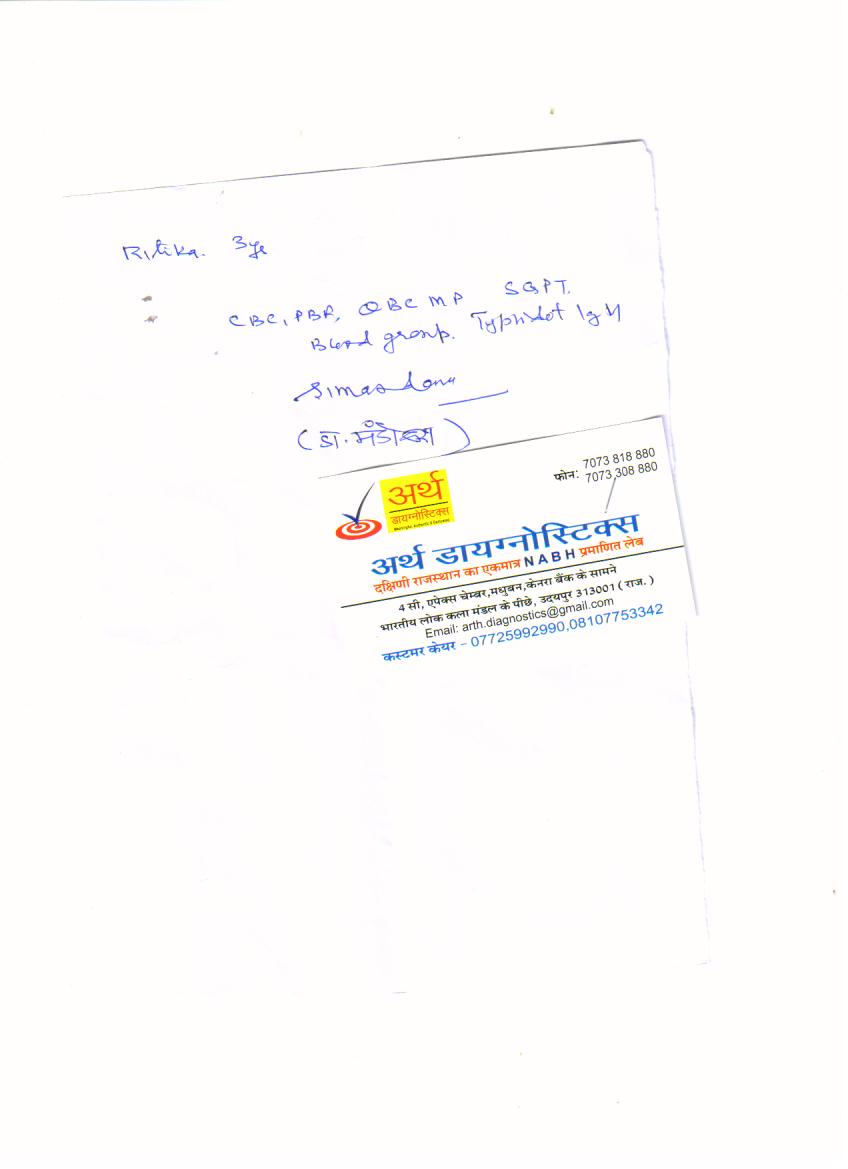 Ritika. 3ye
CBC, PBF, QBC MP SGPT.
Blood group. Typhidot IgM
(डा.
फोन: 7073 818 880
7073 308 880
अर्थ
डायग्नोस्टिक्स
अर्थ डायग्नोस्टिक्स
दक्षिणी राजस्थान का एकमात्र NABH प्रमाणित लेब
4 सी, एपेक्स चेम्बर,मधुबन,केनरा बैंक के सामने
भारतीय लोक कला मंडल के पीछे, उदयपुर 313001 ( राज. )
Email: arth.diagnostics@gmail.com
कस्टमर केयर - 07725992990,08107753342